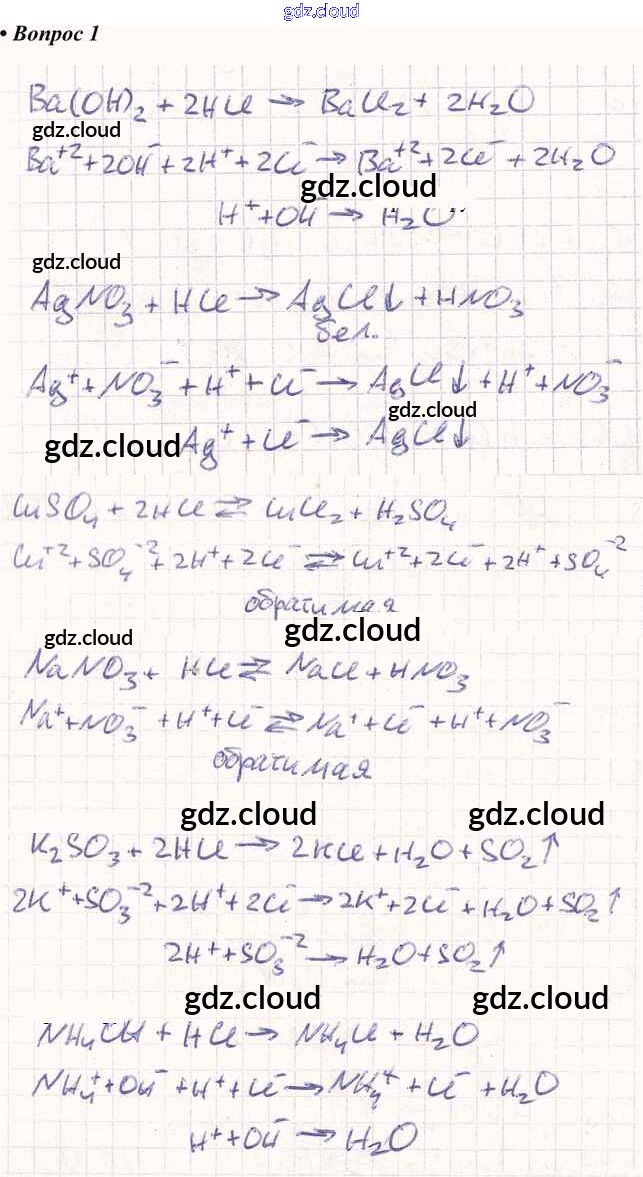 gdz.cloud
• Вопрос 1
Ba(OH)₂ + 2HCl → BaCl₂ + 2H₂O
gdz.cloud
Ba⁺² + 2OH⁻ + 2H⁺ + 2Cl⁻ → Ba⁺² + 2Cl⁻ + 2H₂O
gdz.cloud
H⁺ + OH⁻ → H₂O
gdz.cloud
AgNO₃ + HCl → AgCl↓ + HNO₃
бел.
Ag⁺ + NO₃⁻ + H⁺ + Cl⁻ → AgCl↓ + H⁺ + NO₃⁻
gdz.cloud
gdz.cloud Ag⁺ + Cl⁻ → AgCl↓
CuSO₄ + 2HCl ⇄ CuCl₂ + H₂SO₄
Cu⁺² + SO₄⁻² + 2H⁺ + 2Cl⁻ ⇄ Cu⁺² + 2Cl⁻ + 2H⁺ + SO₄⁻²
обратимая
gdz.cloud gdz.cloud
NaNO₃ + HCl ⇄ NaCl + HNO₃
Na⁺ + NO₃⁻ + H⁺ + Cl⁻ ⇄ Na⁺ + Cl⁻ + H⁺ + NO₃⁻
обратимая
gdz.cloud gdz.cloud
K₂SO₃ + 2HCl → 2KCl + H₂O + SO₂↑
2K⁺ + SO₃⁻² + 2H⁺ + 2Cl⁻ → 2K⁺ + 2Cl⁻ + H₂O + SO₂↑
2H⁺ + SO₃⁻² → H₂O + SO₂↑
gdz.cloud gdz.cloud
NH₄OH + HCl → NH₄Cl + H₂O
NH₄⁺ + OH⁻ + H⁺ + Cl⁻ → NH₄⁺ + Cl⁻ + H₂O
H⁺ + OH⁻ → H₂O